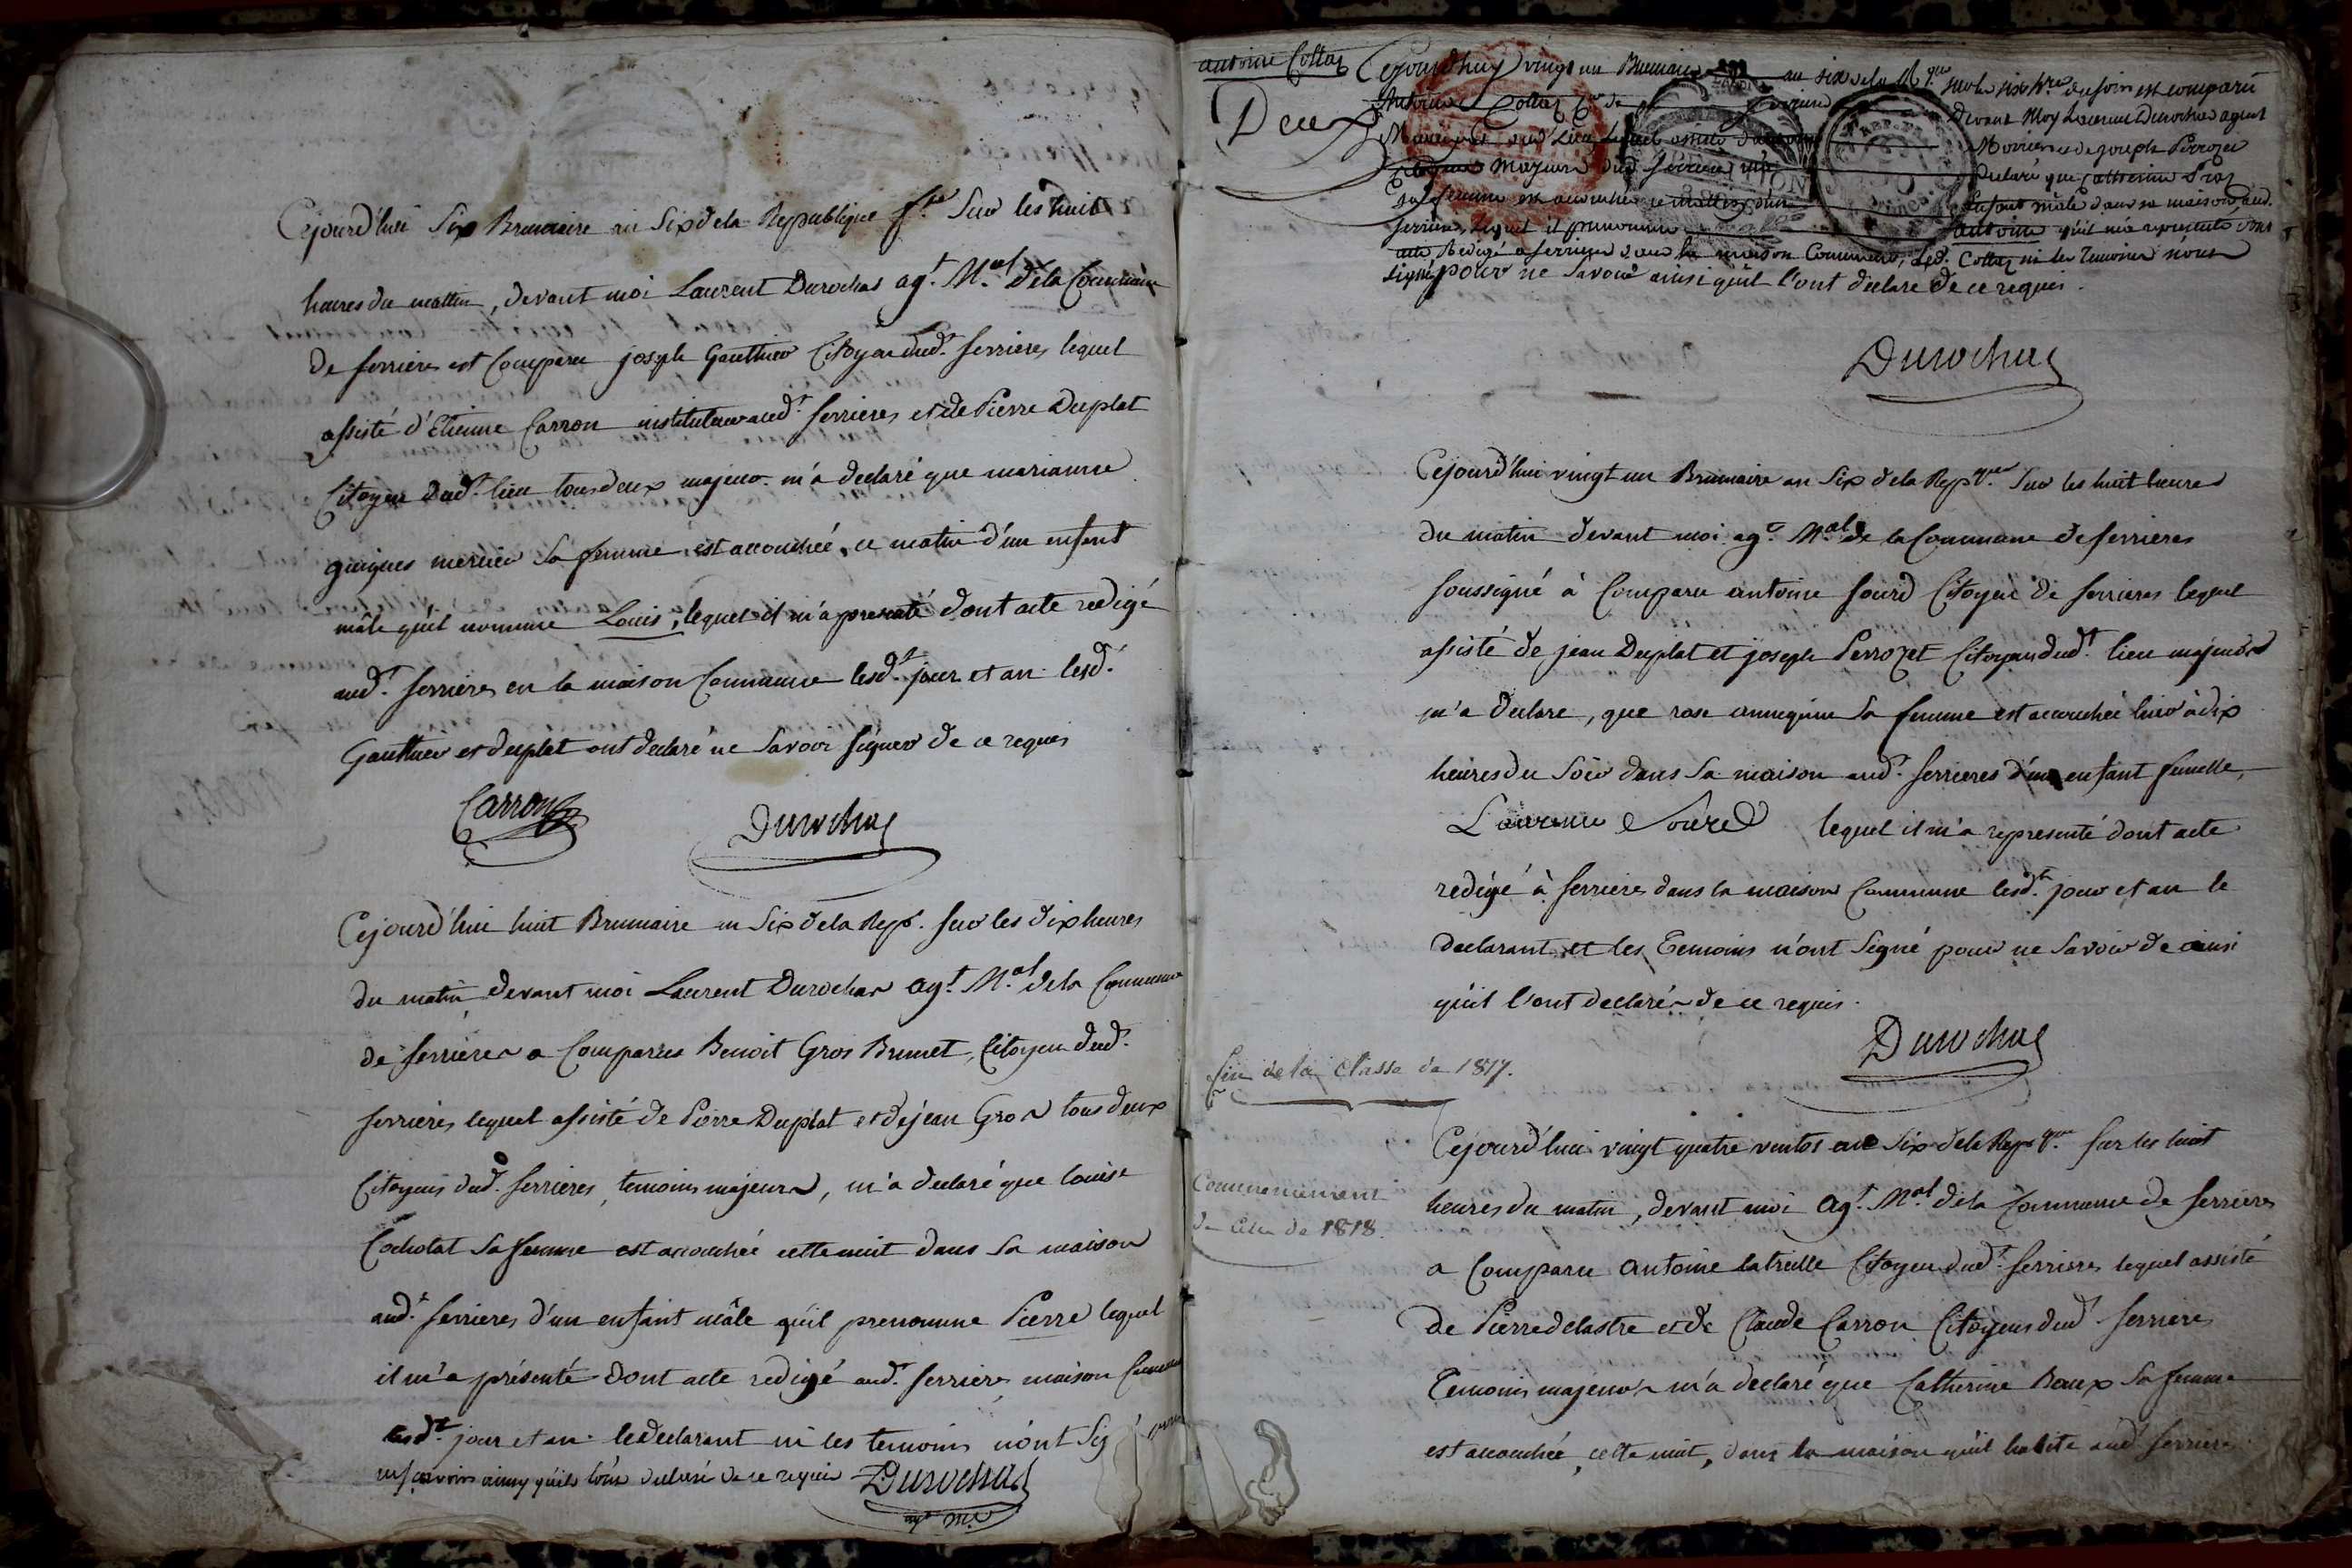 Cejourd'hui Six Brumaire an Six de la Republique f.se Sur les huit
heures du mattin, devant moi Laurent Durochas ag.t M.al de la Commune
de serrieres est Comparu joseph Gauthier Citoyen dud.t serrieres lequel
assisté d'Etienne Carron instituteur aud.t serrieres et de Pierre Duplat
Citoyen dud.t lieu tous deux majeurs m'a declaré que marianne
guigues mercier sa femme est accouchée, ce matin d'un enfant
mâle qu'il nomme Louis, lequel il m'a presenté dont acte redigé
aud.t serrieres en la maison Commune lesd.t jour et an lesd.
Gauthier et duplat ont declaré ne Savoir signer de ce requis
Carron
Durochas
Cejourd'hui huit Brumaire an Six de la Rep. sur les dix heures
du matin devant moi Laurent Durochas ag.t M.al de la Commune
de serrieres a Comparu Benoit Gros Brunet, Citoyen dud.
serrieres lequel assisté de Pierre Duplat et de jean Gros tous deux
Citoyens dud. serrieres, temoins majeurs, m'a declaré que louise
Cochotat sa femme est accouchée cette nuit dans sa maison
aud.t serrieres d'un enfant mâle qu'il prenomme Pierre lequel
il m'a présenté dont acte redigé aud.t serrieres maison Commune
lesd.t jour et an. le declarant ni les temoins n'ont Sig
ainsy qu'ils l'ont declaré de ce requis Durochas
agt M.
antoine Collaz
Deux
Cejourdhuy vingt un Brumaire an six de la R.que sur les six h.res du soir est comparu
Antoine Collaz Devant Moy Laurent Durochas agent
dud Lieu Lequel assisté de joseph Perrozet
Majeurs dud serrieres m'a Declaré que Catherine
sa femme est accouchée ce mattin d'un Enfant mâle dans sa maison aud.
serrieres, Lequel il prenomme antoine qu'il m'a representé dont
acte Redigé a serrieres dans la maison Commune, Led. Collaz ni les Temoins n'ont
signé pour ne Savoir ainsi qu'il l'ont declaré de ce requis.
Durochas
Cejourd'hui vingt un Brumaire an Six de la Rep.que Sur les huit heures
du matin devant moi ag.t M.al de la Commune de serrieres
soussigné à Comparu antoine sourd Citoyen de serrieres lequel
assisté de jean Duplat et joseph Perrozet Citoyens dud.t lieu majeurs
m'a declaré, que rose annequin sa femme est accouchée hier à dix
heures du Soir dans sa maison aud. serrieres d'un enfant femelle,
Laurence Sourd lequel il m'a representé dont acte
redigé à serrieres dans la maison Commune lesd.t jour et an le
declarant et les Temoins n'ont Signé pour ne Savoir de ainsi
qu'il l'ont declaré de ce requis.
Durochas
fin de la Classe de 1817.
Commencement
de celle de 1818.
Cejourd'hui vingt quatre ventos an Six de la Rep.que sur les huit
heures du matin, devant moi ag.t M.al de la Commune de serrieres
a Comparu antoine latreille Citoyen dud.t serrieres lequel assisté
de Pierre delastre et de Claude Carron Citoyens dud.t serrieres
Temoins majeurs m'a declaré que Catherine Baux sa femme
est accouchée, cette nuit, dans la maison qu'il habite aud.t serrieres